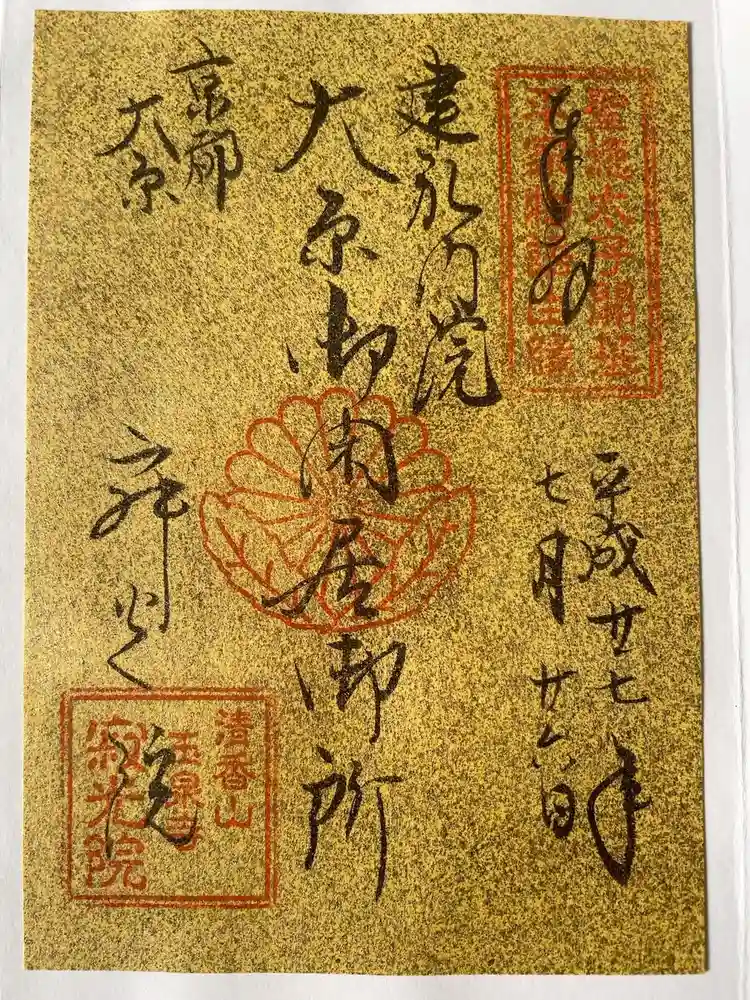 奉拝
聖徳太子開基
平家物語
平成廿七年
七月廿六日
建礼門院
大原御閑居御所
京都
大原
寂光院
清香山
玉泉寺
寂光院